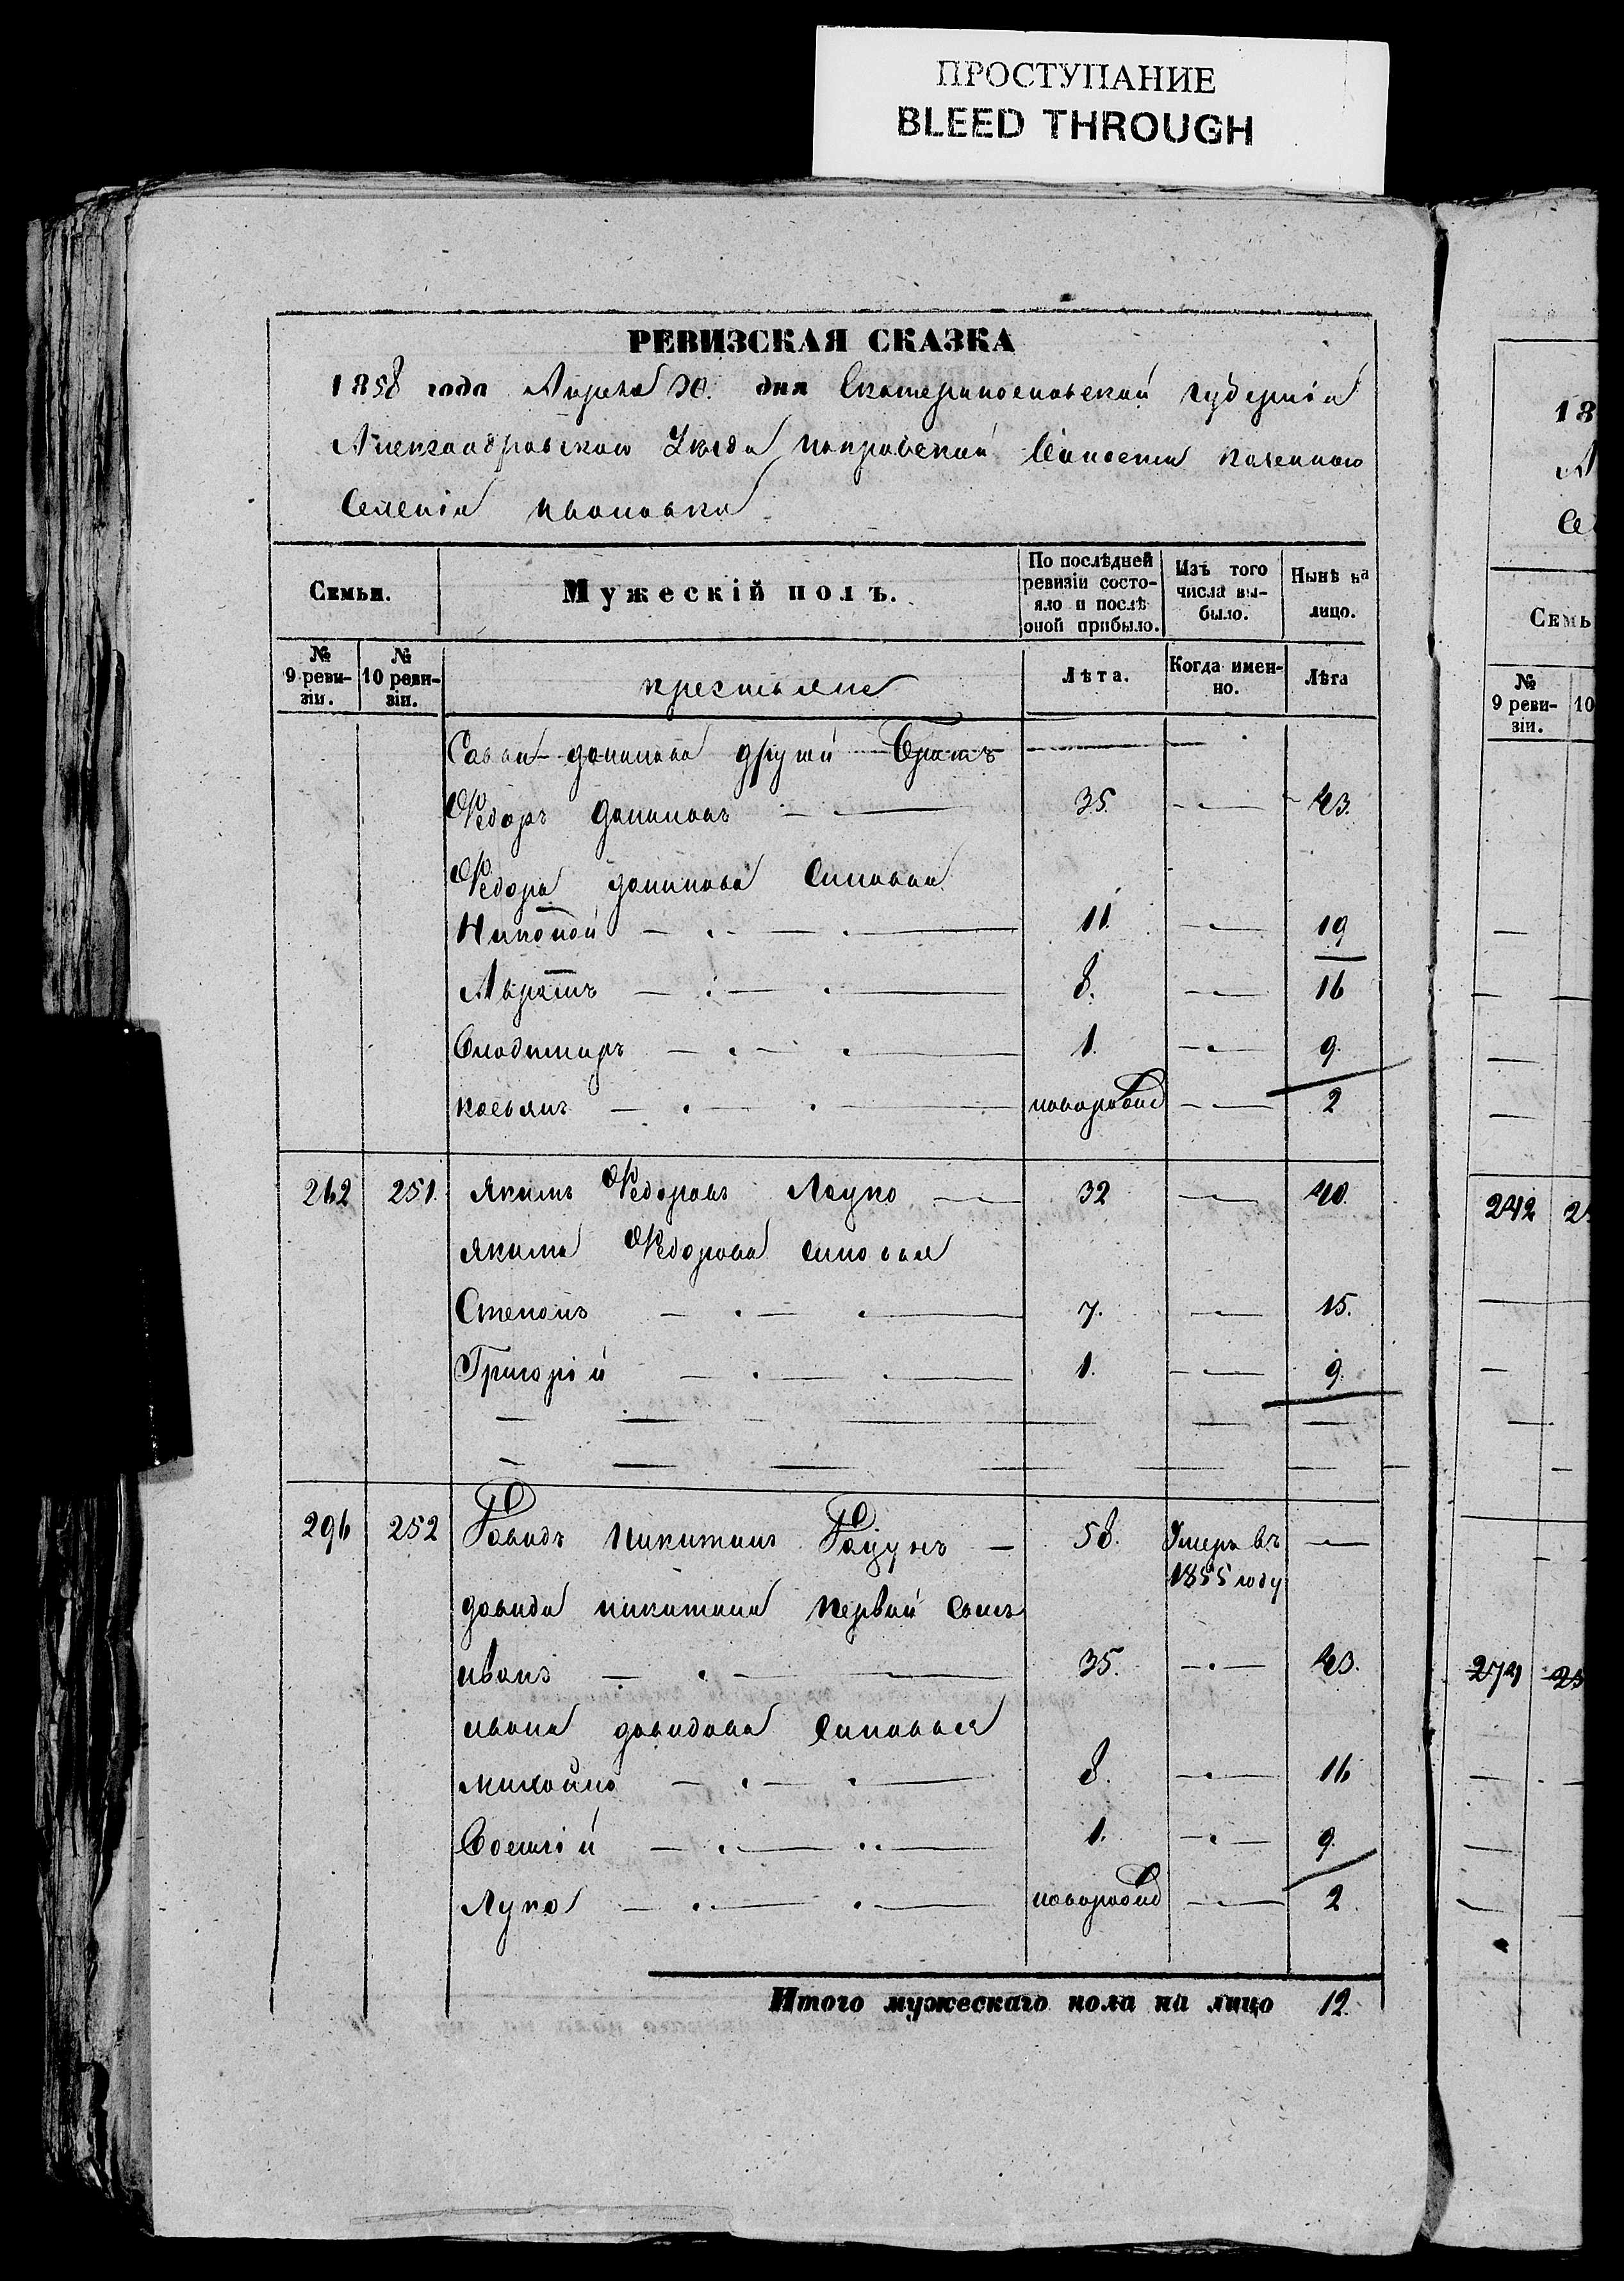 ПРОСТУПАНИЕ
BLEED THROUGH
РЕВИЗСКАЯ СКАЗКА
1858 года Апреля 30. дня Екатеринославской губернiи
Александровского Уезда Покровской Волости казенного
Селенiя Ивановки
Семьи. Мужескiй полъ. По послѣдней ревизiи состо-яло и послѣ оной прибыло. Изъ того числа вы-было. Нынѣ на лицо.
№ 9 реви-зiи. № 10 реви-зiи. крестьяне Лѣта. Когда имен-но. Лѣта
Савы данилова другий Братъ
Федоръ Даниловъ 35. 43.
Федора данилова Синовья
Никофой 11. 19
8. 16
Владимиръ 1. 9.
касьянъ новорожд 2
262 251. Якимъ Федоровъ Лауко 32 40.
Якима Федорова синовья
Степанъ 7. 15.
Григорiй 1. 9.
296 252 Давидъ Никитинъ 58. Умеръ въ
1855 году
давида никитина Первый Сынъ
иванъ 35. 43.
ивана давидова Синовья
михайло 8. 16
Василiй 1. 9.
Лука новорожд 2
Итого мужескаго пола на лицо 12.
18
А
Се
Семь
№ 9 реви-зiи. 10
242 2
274 25